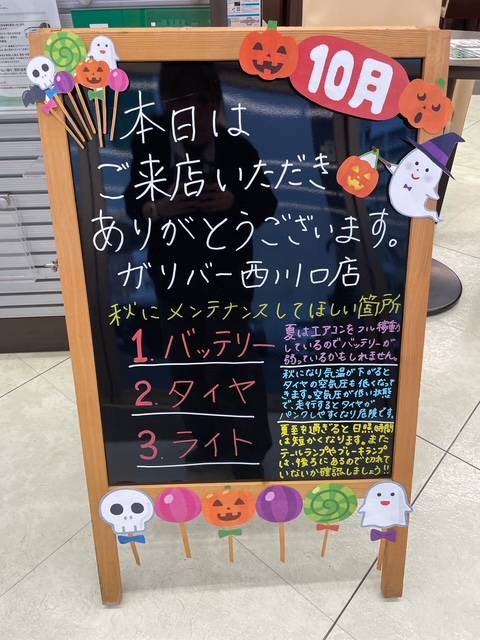 10月
本日は
ご来店いただき
ありがとうございます。
ガリバー西川口店
秋にメンテナンスしてほしい箇所
1. バッテリー
夏はエアコンをフル稼動
しているのでバッテリーが
弱っているかもしれません。
2. タイヤ
秋になり気温が下がると
タイヤの空気圧も低くなって
きます。空気圧が低い状態
で、走行するとタイヤが
パンクしやすくなり危険です。
3. ライト
夏至を過ぎると日照時間
は短かくなります。また
テールランプやブレーキランプ
は、後ろにあるので切れて
いないか確認しましょう!!